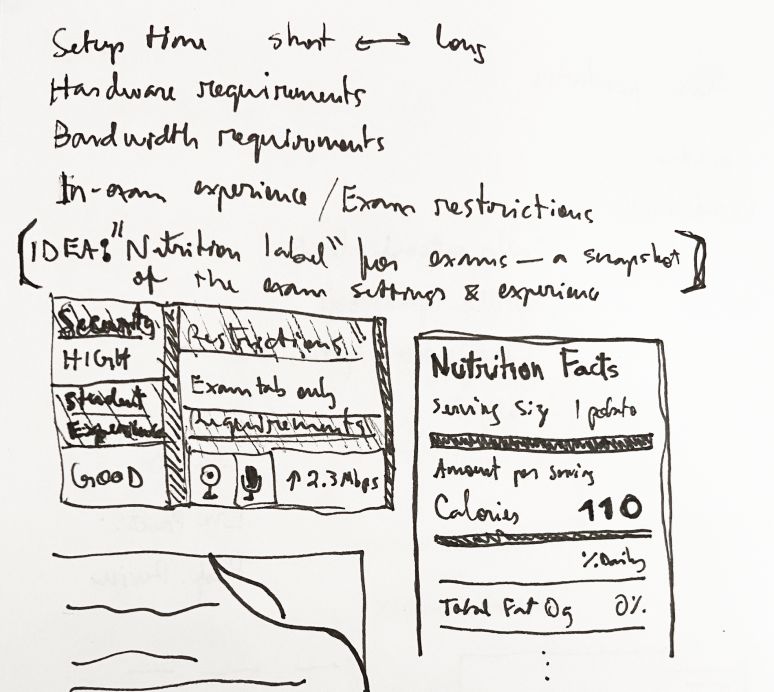 Setup time short ↔ long
Hardware requirements
Bandwidth requirements
In-exam experience / Exam restrictions
[IDEA: "Nutrition label" for exams — a snapshot
of the exam settings & experience]
Security
HIGH
Student
Experience
GOOD
Restrictions
Exam tab only
Requirements
↑ 2.3 Mbps
Nutrition Facts
Serving Siz 1 potato
Amount per serving
Calories 110
% Daily
Total Fat 0g 0%